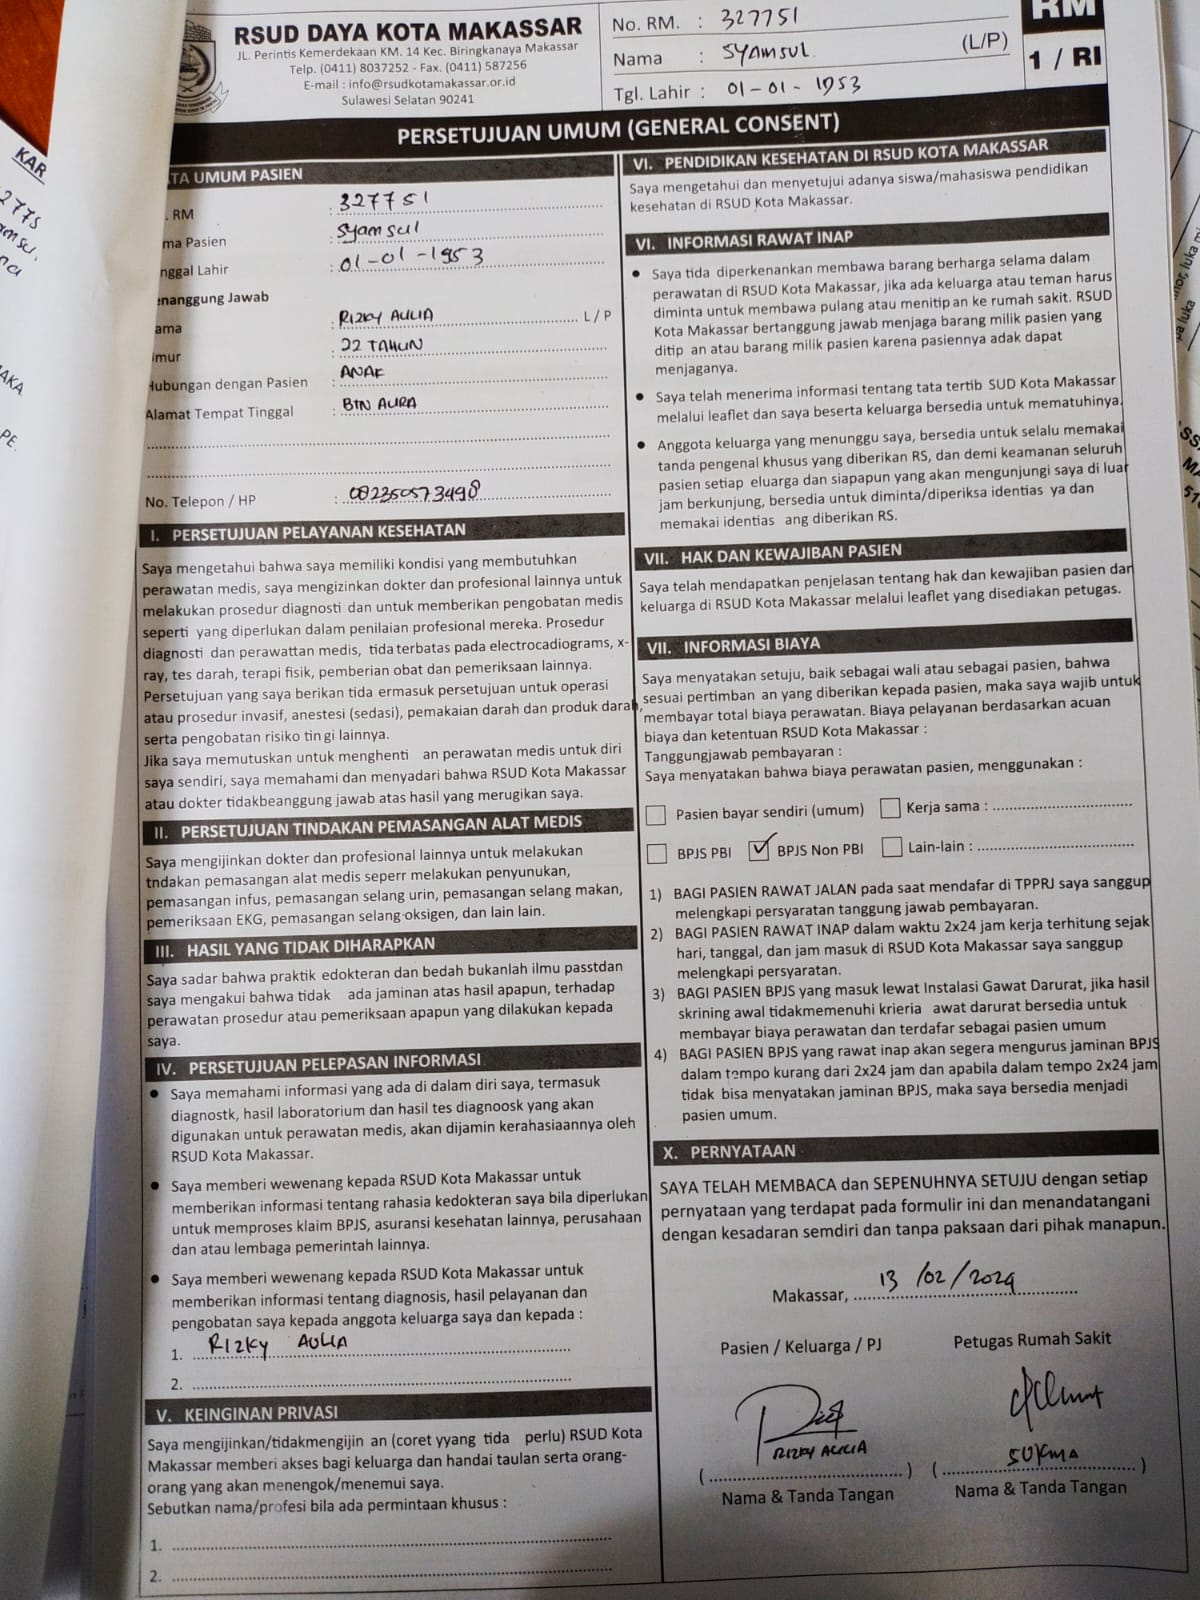 RSUD DAYA KOTA MAKASSAR
JL. Perintis Kemerdekaan KM. 14 Kec. Biringkanaya Makassar
Telp. (0411) 8037252 - Fax. (0411) 587256
E-mail : info@rsudkotamakassar.or.id
Sulawesi Selatan 90241
No. RM. : 327751
Nama : SYAMSUL (L/P)
Tgl. Lahir : 01-01-1953
RM
1 / RI
PERSETUJUAN UMUM (GENERAL CONSENT)
TA UMUM PASIEN
. RM : 327751
ma Pasien : Syamsul
nggal Lahir : 01-01-1953
enanggung Jawab
ama : RIZKY AULIA L / P
mur : 22 TAHUN
Hubungan dengan Pasien : ANAK
Alamat Tempat Tinggal : BTN AURA
No. Telepon / HP : 082350573498
I. PERSETUJUAN PELAYANAN KESEHATAN
Saya mengetahui bahwa saya memiliki kondisi yang membutuhkan
perawatan medis, saya mengizinkan dokter dan profesional lainnya untuk
melakukan prosedur diagnosti dan untuk memberikan pengobatan medis
seperti yang diperlukan dalam penilaian profesional mereka. Prosedur
diagnosti dan perawattan medis, tida terbatas pada electrocadiograms, x-
ray, tes darah, terapi fisik, pemberian obat dan pemeriksaan lainnya.
Persetujuan yang saya berikan tida ermasuk persetujuan untuk operasi
atau prosedur invasif, anestesi (sedasi), pemakaian darah dan produk darah,
serta pengobatan risiko tin gi lainnya.
Jika saya memutuskan untuk menghenti an perawatan medis untuk diri
saya sendiri, saya memahami dan menyadari bahwa RSUD Kota Makassar
atau dokter tidakbeanggung jawab atas hasil yang merugikan saya.
II. PERSETUJUAN TINDAKAN PEMASANGAN ALAT MEDIS
Saya mengijinkan dokter dan profesional lainnya untuk melakukan
tndakan pemasangan alat medis seperr melakukan penyunukan,
pemasangan infus, pemasangan selang urin, pemasangan selang makan,
pemeriksaan EKG, pemasangan selang oksigen, dan lain lain.
III. HASIL YANG TIDAK DIHARAPKAN
Saya sadar bahwa praktik edokteran dan bedah bukanlah ilmu passtdan
saya mengakui bahwa tidak ada jaminan atas hasil apapun, terhadap
perawatan prosedur atau pemeriksaan apapun yang dilakukan kepada
saya.
IV. PERSETUJUAN PELEPASAN INFORMASI
• Saya memahami informasi yang ada di dalam diri saya, termasuk
diagnostk, hasil laboratorium dan hasil tes diagnoosk yang akan
digunakan untuk perawatan medis, akan dijamin kerahasiaannya oleh
RSUD Kota Makassar.
• Saya memberi wewenang kepada RSUD Kota Makassar untuk
memberikan informasi tentang rahasia kedokteran saya bila diperlukan
untuk memproses klaim BPJS, asuransi kesehatan lainnya, perusahaan
dan atau lembaga pemerintah lainnya.
• Saya memberi wewenang kepada RSUD Kota Makassar untuk
memberikan informasi tentang diagnosis, hasil pelayanan dan
pengobatan saya kepada anggota keluarga saya dan kepada :
1. RIZKY AULIA
2.
V. KEINGINAN PRIVASI
Saya mengijinkan/tidakmengijin an (coret yyang tida perlu) RSUD Kota
Makassar memberi akses bagi keluarga dan handai taulan serta orang-
orang yang akan menengok/menemui saya.
Sebutkan nama/profesi bila ada permintaan khusus :
1.
2.
VI. PENDIDIKAN KESEHATAN DI RSUD KOTA MAKASSAR
Saya mengetahui dan menyetujui adanya siswa/mahasiswa pendidikan
kesehatan di RSUD Kota Makassar.
VI. INFORMASI RAWAT INAP
• Saya tida diperkenankan membawa barang berharga selama dalam
perawatan di RSUD Kota Makassar, jika ada keluarga atau teman harus
diminta untuk membawa pulang atau menitip an ke rumah sakit. RSUD
Kota Makassar bertanggung jawab menjaga barang milik pasien yang
ditip an atau barang milik pasien karena pasiennya adak dapat
menjaganya.
• Saya telah menerima informasi tentang tata tertib SUD Kota Makassar
melalui leaflet dan saya beserta keluarga bersedia untuk mematuhinya.
• Anggota keluarga yang menunggu saya, bersedia untuk selalu memakai
tanda pengenal khusus yang diberikan RS, dan demi keamanan seluruh
pasien setiap eluarga dan siapapun yang akan mengunjungi saya di luar
jam berkunjung, bersedia untuk diminta/diperiksa identias ya dan
memakai identias ang diberikan RS.
VII. HAK DAN KEWAJIBAN PASIEN
Saya telah mendapatkan penjelasan tentang hak dan kewajiban pasien dan
keluarga di RSUD Kota Makassar melalui leaflet yang disediakan petugas.
VII. INFORMASI BIAYA
Saya menyatakan setuju, baik sebagai wali atau sebagai pasien, bahwa
sesuai pertimban an yang diberikan kepada pasien, maka saya wajib untuk
membayar total biaya perawatan. Biaya pelayanan berdasarkan acuan
biaya dan ketentuan RSUD Kota Makassar :
Tanggungjawab pembayaran :
Saya menyatakan bahwa biaya perawatan pasien, menggunakan :
Pasien bayar sendiri (umum) Kerja sama :
BPJS PBI ✓ BPJS Non PBI Lain-lain :
1) BAGI PASIEN RAWAT JALAN pada saat mendafar di TPPRJ saya sanggup
melengkapi persyaratan tanggung jawab pembayaran.
2) BAGI PASIEN RAWAT INAP dalam waktu 2x24 jam kerja terhitung sejak
hari, tanggal, dan jam masuk di RSUD Kota Makassar saya sanggup
melengkapi persyaratan.
3) BAGI PASIEN BPJS yang masuk lewat Instalasi Gawat Darurat, jika hasil
skrining awal tidakmemenuhi krieria awat darurat bersedia untuk
membayar biaya perawatan dan terdafar sebagai pasien umum
4) BAGI PASIEN BPJS yang rawat inap akan segera mengurus jaminan BPJS
dalam tempo kurang dari 2x24 jam dan apabila dalam tempo 2x24 jam
tidak bisa menyatakan jaminan BPJS, maka saya bersedia menjadi
pasien umum.
X. PERNYATAAN
SAYA TELAH MEMBACA dan SEPENUHNYA SETUJU dengan setiap
pernyataan yang terdapat pada formulir ini dan menandatangani
dengan kesadaran semdiri dan tanpa paksaan dari pihak manapun.
Makassar, 13/02/2024
Pasien / Keluarga / PJ Petugas Rumah Sakit
RIZKY AULIA SUKMA
Nama & Tanda Tangan Nama & Tanda Tangan